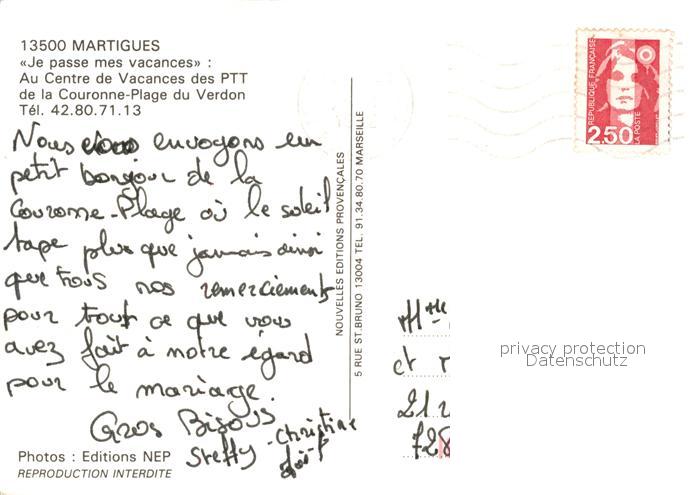 13500 MARTIGUES
«Je passe mes vacances» :
Au Centre de Vacances des PTT
de la Couronne-Plage du Verdon
Tél. 42.80.71.13
Nous envoyons un
petit bonjour de la
Couronne-Plage où le soleil
tape plus que jamais ainsi
que tous nos remerciements
pour tout ce que vous
avez fait à notre égard
pour le mariage.
Gros Bisous
Steffy - Christine
Photos : Editions NEP
REPRODUCTION INTERDITE
NOUVELLES EDITIONS PROVENÇALES
5 RUE ST.BRUNO 13004 TEL. 91.34.80.70 MARSEILLE
REPUBLIQUE FRANÇAISE
2,50
LA POSTE
et
21
728
privacy protection
Datenschutz